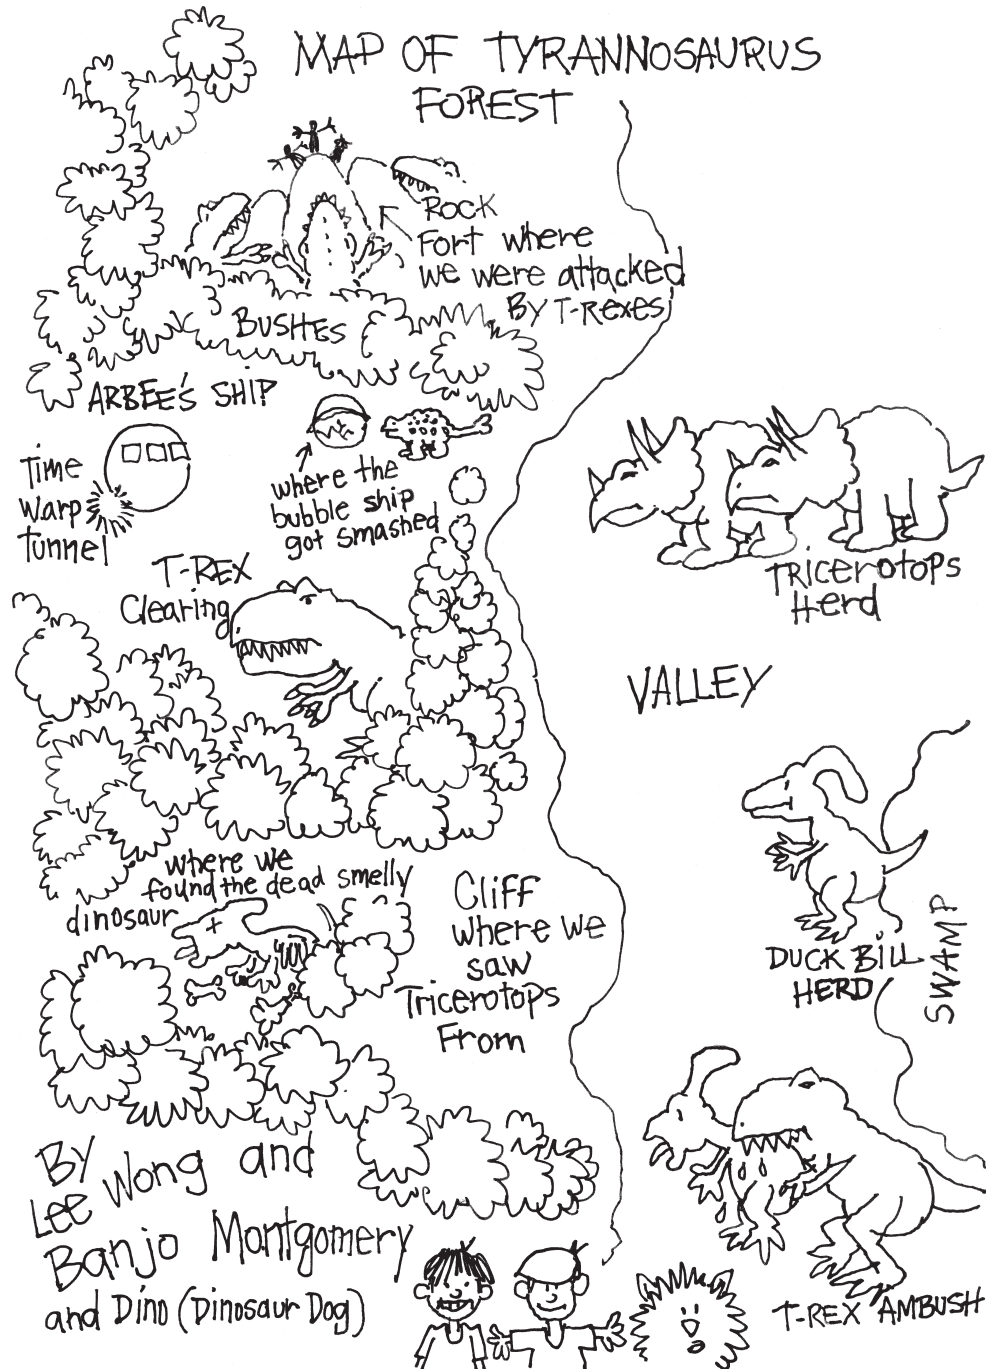 MAP OF TYRANNOSAURUS
FOREST
ROCK
Fort where
we were attacked
By T-Rexes
BUSHES
ARBEE'S SHIP
Time
Warp
tunnel
where the
bubble ship
got smashed
T-REX
Clearing
TRicerotops
Herd
VALLEY
where we
found the dead smelly
dinosaur
Cliff
where we
saw
Tricerotops
From
DUCK BILL
HERD
SWAMP
By
Lee Wong and
Banjo Montgomery
and Dino (Dinosaur Dog)
T-REX AMBUSH